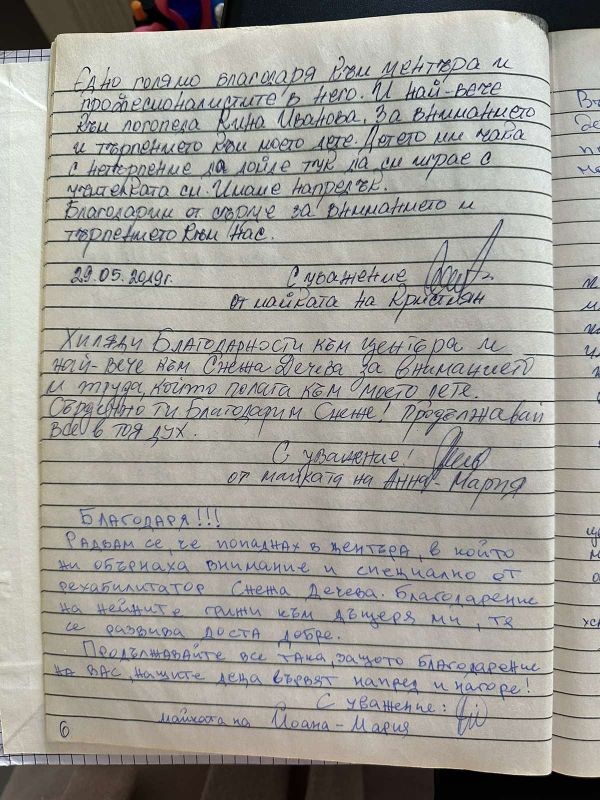 Едно голямо благодаря към центъра и
професионалистите в него. И най-вече
към логопеда Кина Иванова. За вниманието
и търпението към моето дете. Детето ми чака
с нетърпение да дойде тук да си играе с
учителката си. Имаме напредък.
Благодарим от сърце за вниманието и
търпението към нас.
29.05.2019г. С уважение
от майката на Кристиян
Хиляди Благодарности към центъра и
най-вече към Снежа Дечева за вниманието
и труда, който полага към моето дете.
Сърдечно ти Благодарим Снеже! Продължавай
все в тоя дух.
С уважение!
от майката на Анна-Мария
Благодаря!!!
Радвам се, че попаднах в центъра, в който
ми обърнаха внимание и специално от
рехабилитатор Снежа Дечева. Благодарение
на нейните грижи към дъщеря ми, тя
се развива доста добре.
Продължавайте все така, защото благодарение
на вас, нашите деца вървят напред и нагоре!
С уважение:
майката на Йоана-Мария
6